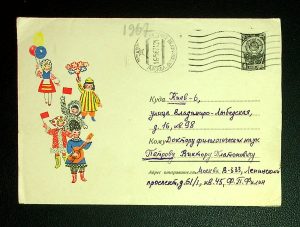 1967
Куда Киев-6,
улица Владимиро-Лыбедская,
д. 16, №98
Кому Доктору филологических наук
Петрову Виктору Платоновичу
Адрес отправителя Москва В-333, Ленинский
проспект, д. 61/1, кв. 45, Ф. П. Филин